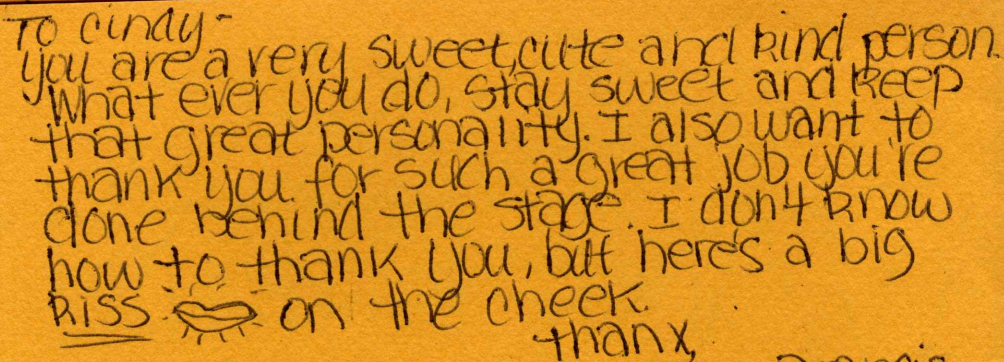 To Cindy-
you are a very sweet, cute and kind person.
What ever you do, stay sweet and keep
that great personality. I also want to
thank you for such a great job you're
done behind the stage. I don't know
how to thank you, but here's a big
kiss on the cheek
thanx,